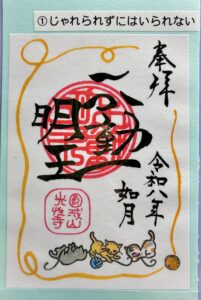 ①じゃれられずにはいられない
奉拝
不動
明王
令和八年
如月
光性寺